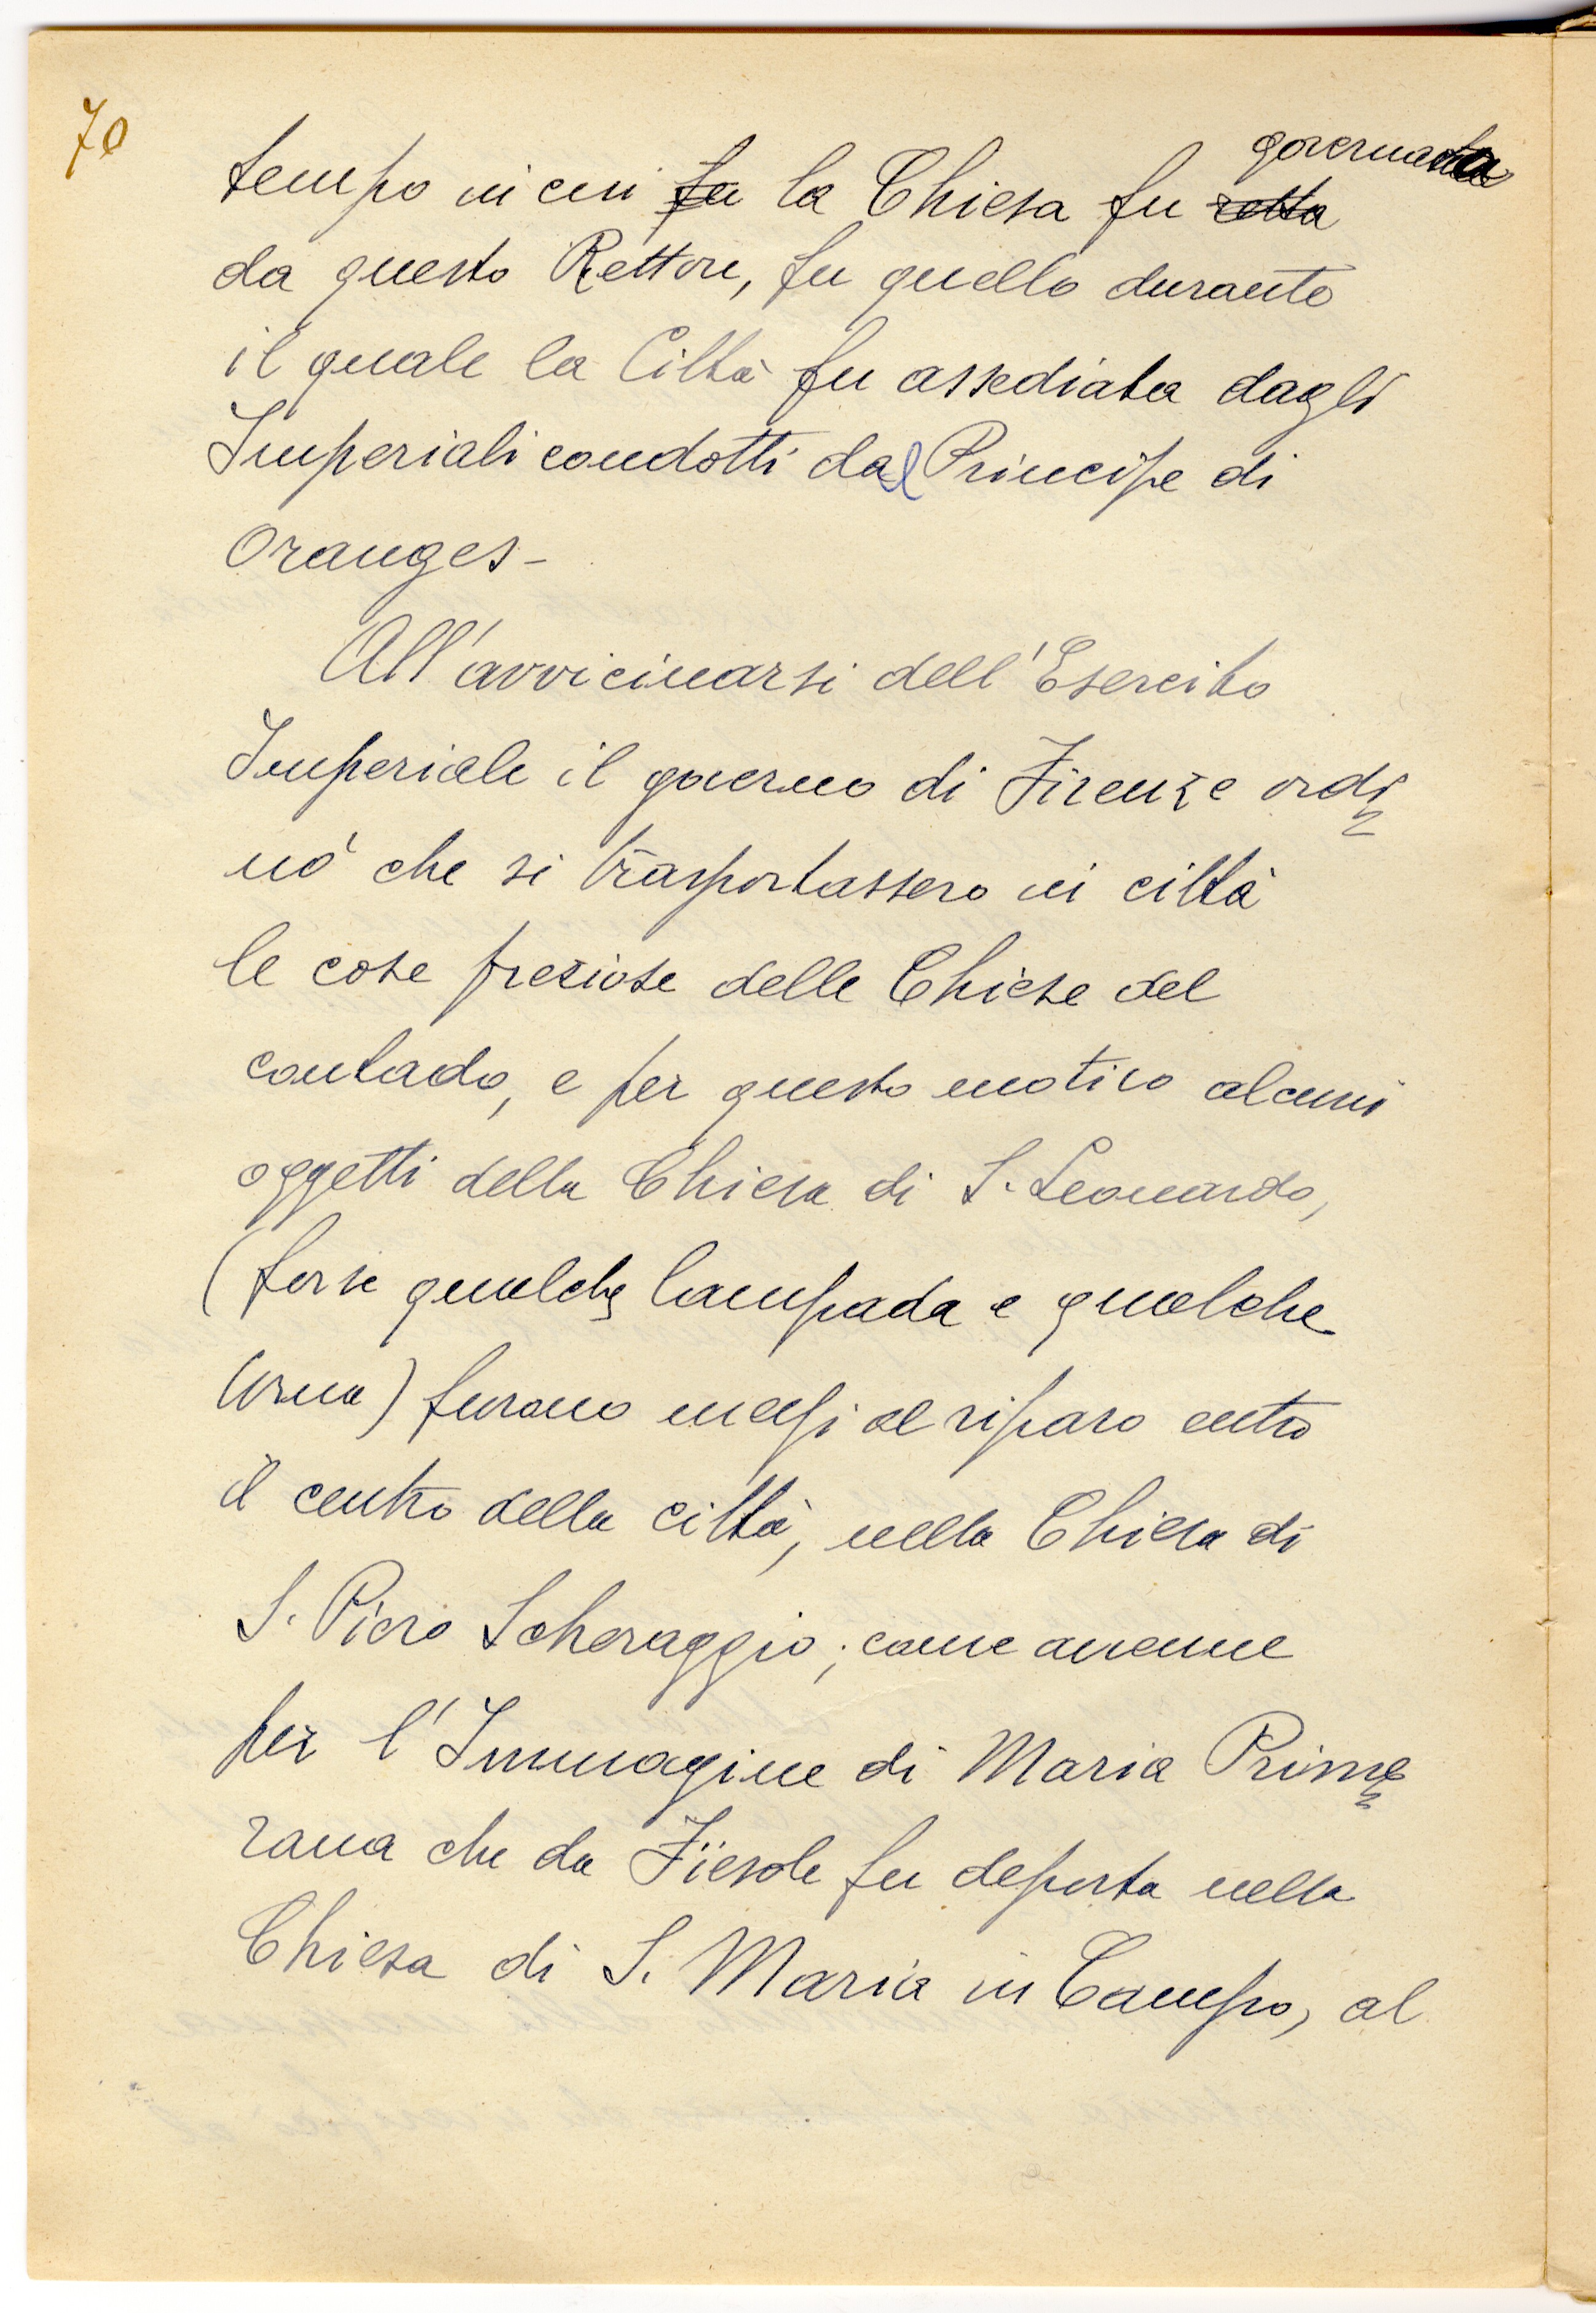 70
governata
tempo in cui fu la Chiesa fu retta
da questo Rettore, fu quello durante
il quale la Città fu assediata dagli
Imperiali condotti dal Principe di
Oranges-
All'avvicinarsi dell'Esercito
Imperiale il governo di Firenze ordi
nò che si trasportassero in città
le cose preziose delle Chiese del
contado, e per questo motivo alcuni
oggetti della Chiesa di S. Leonardo,
(forse qualche lampada e qualche
urna) furono messi al riparo entro
il centro della città, nella Chiesa di
S. Piero Scheraggio; come avenne
per l'Immagine di Maria Prime
rana che da Fiesole fu deposta nella
Chiesa di S. Maria in Campo, al